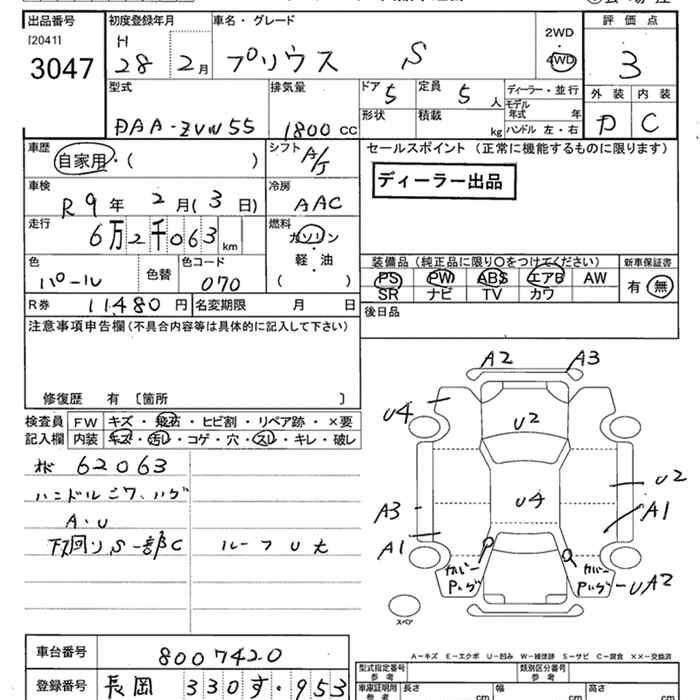 出品番号 初度登録年月 車名・グレード 2WD 評価点
[2041] H ・
3047 28 2月 プリウス S 4WD 3
型式 排気量 ドア 定員 ディーラー・並行 外装 内装
5 5 人 モデル年式 年
DAA-ZVW55 1800 CC 形状 積載 kg ハンドル 左・右 D C
車歴 シフト セールスポイント (正常に機能するものに限ります)
自家用・( ) A/S
ディーラー出品
車検 冷房
R9年 2月(3日) AAC
走行 燃料
6万2千063 km ガソリン
・
軽・油
色 色替 色コード ( ) 装備品 (純正品に限り○をつけてください) 新車保証書
パール 070 PS PW ABS エアB AW 有・無
SR ナビ TV カワ
R券 11,480円 名変期限 月 日 後日品
注意事項申告欄 (不具合内容等は具体的に記入して下さい)
修復歴 有 〔箇所 〕
検査員 FW キズ・飛石・ヒビ割・リペア跡・×要
記入欄 内装 キズ・汚レ・コゲ・穴・スレ・キレ・破レ
62063
ハンドルシワ、ハゲ
A・U
下廻りS一部C ルーフU大
A2 A3
U4 U2
U4 U2
A3 A1
A1
カバー カバー
Pハゲ Pハゲ UA2
スペア
A-キズ E-エクボ U-凹み W-補修跡 S-サビ C-腐食 ××-交換済
車台番号 8007420 型式指定番号 類別区分番号
参考 参考
登録番号 長岡 330す・953 車庫証明所 長さ 幅 高さ
参考 cm cm cm